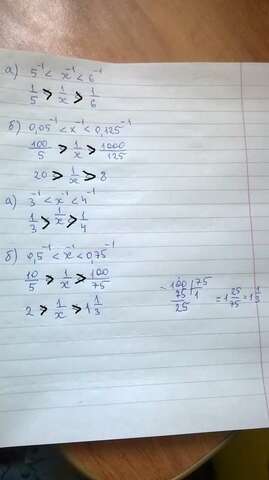 а) 5⁻¹ < x⁻¹ < 6⁻¹
1/5 > 1/x > 1/6
б) 0,05⁻¹ < x⁻¹ < 0,125⁻¹
100/5 > 1/x > 1000/125
20 > 1/x > 8
а) 3⁻¹ < x⁻¹ < 4⁻¹
1/3 > 1/x > 1/4
б) 0,5⁻¹ < x⁻¹ < 0,75⁻¹
10/5 > 1/x > 100/75
2 > 1/x > 1 1/3
- 100 | 75
75 | 1
25
= 1 25/75 = 1 1/3